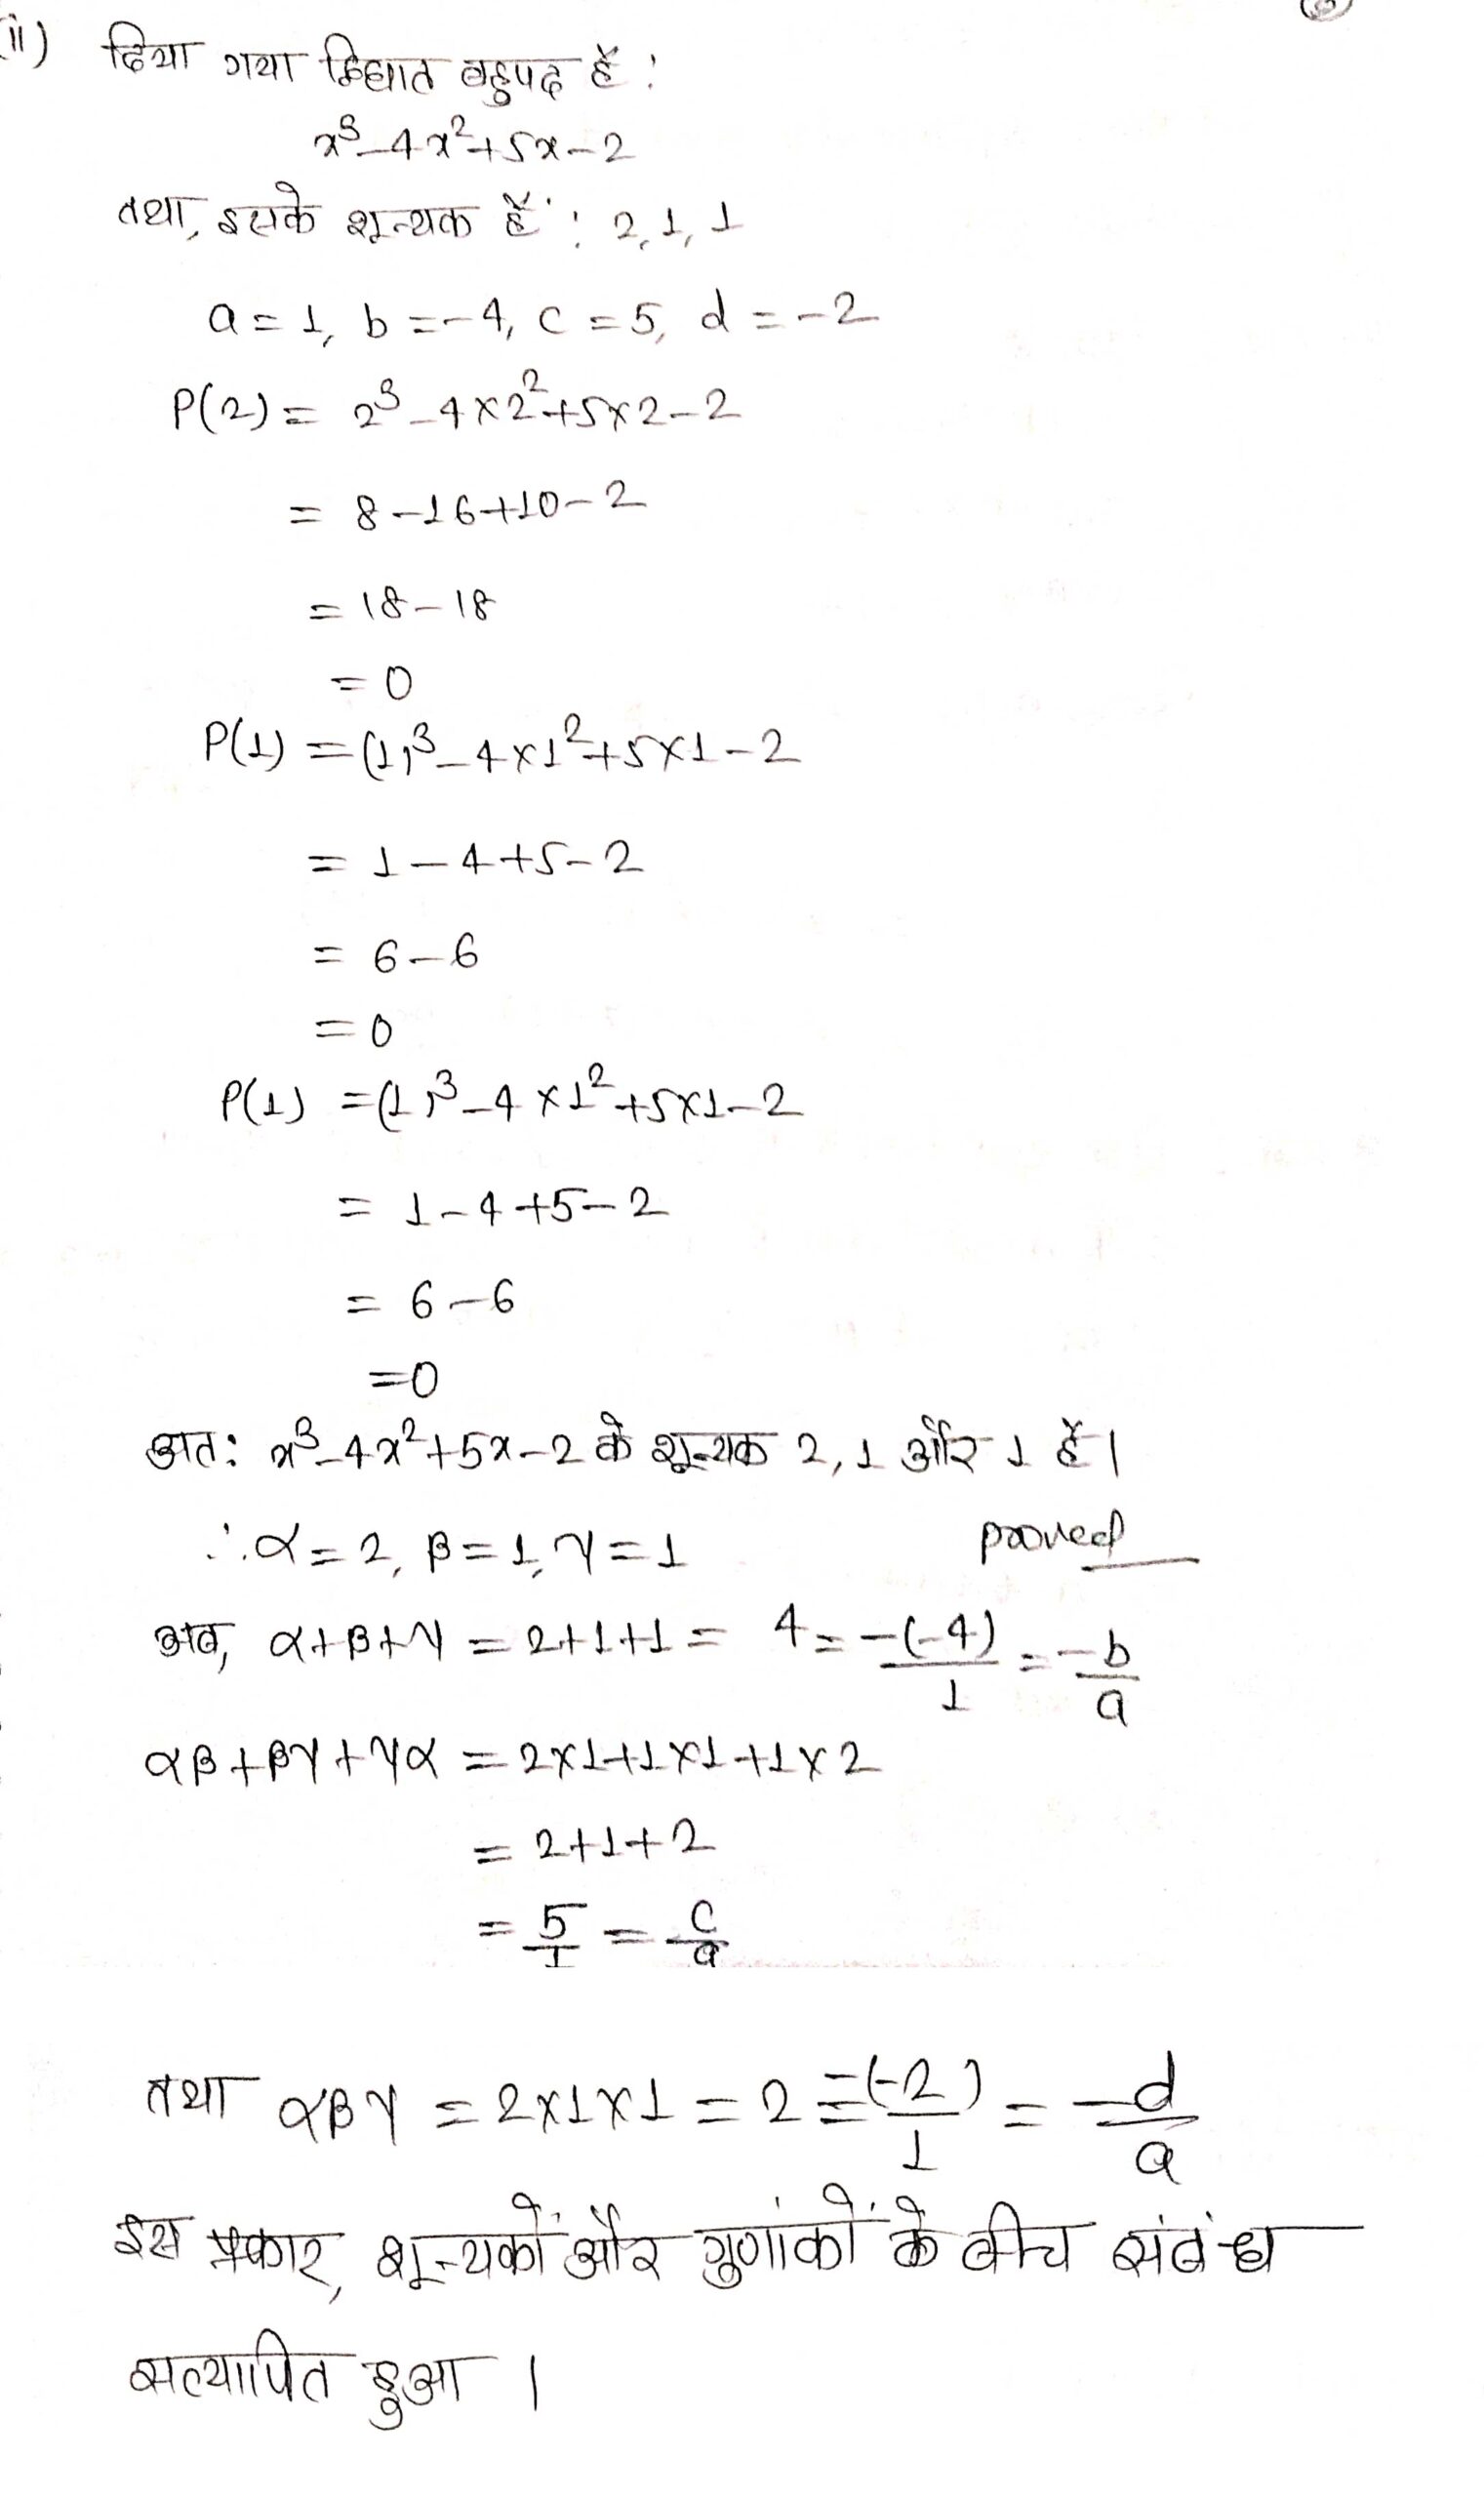 ii) दिया गया द्विघात बहुपद हैं :
x³-4x²+5x-2
तथा, इसके शून्यक हैं : 2, 1, 1
a = 1, b = -4, c = 5, d = -2
P(2) = 2³-4×2²+5×2-2
= 8-16+10-2
= 18-18
= 0
P(1) = (1)³-4×1²+5×1-2
= 1-4+5-2
= 6-6
= 0
P(1) = (1)³-4×1²+5×1-2
= 1-4+5-2
= 6-6
= 0
अत: x³-4x²+5x-2 के शून्यक 2, 1 और 1 हैं।
∴ α = 2, β = 1, γ = 1 proved
अब, α+β+γ = 2+1+1 = 4 = -(-4)/1 = -b/a
αβ+βγ+γα = 2×1+1×1+1×2
= 2+1+2
= 5/1 = c/a
तथा αβγ = 2×1×1 = 2 = -(-2)/1 = -d/a
इस प्रकार, शून्यकों और गुणांकों के बीच संबंध
सत्यापित हुआ ।